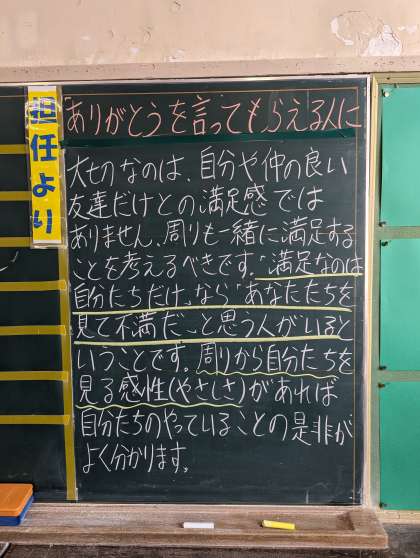 担任より
ありがとうを言ってもらえる人に
大切なのは、自分や仲の良い
友達だけとの満足感では
ありません。周りも一緒に満足する
ことを考えるべきです。「満足なのは
自分たちだけ」なら「あなたたちを
見て不満だ」と思う人がいると
いうことです。周りから自分たちを
見る感性(やさしさ)があれば
自分たちのやっていることの是非が
よく分かります。